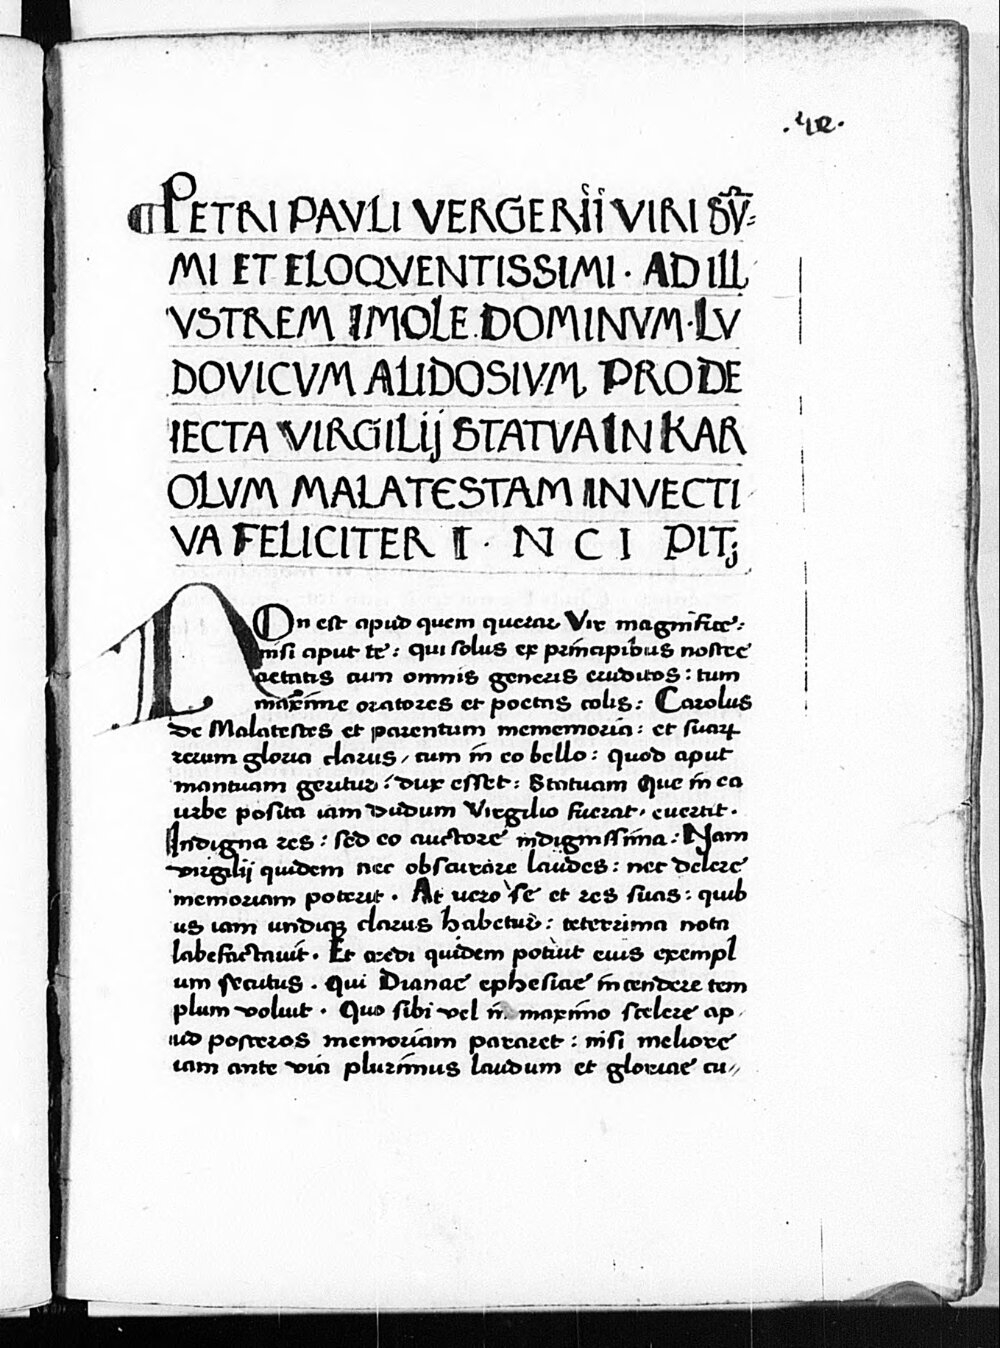 .42.
PETRI PAVLI VERGERII VIRI SV̄=
MI ET ELOQVENTISSIMI · AD ILL
VSTREM IMOLE DOMINVM·LV
DOVICVM ALIDOSIVM PRO DE
IECTA VIRGILIJ STATVA IN KAR
OLVM MALATESTAM INVECTI
VA FELICITER I · N C I PIT;
NOn est apud quem querar Vir magnifice:
nisi aput te: qui solus ex principibus nostre
aetatis cum omnis generis eruditos: tum
maxīme oratores et poetas colis: Carolus
de Malatestes et parentum mememoria: et suaꝝ
rerum gloria clarus, cum in eo bello: quod aput
mantuam geritur: dux esset: Statuam Que in ea
urbe posita iam dudum Virgilio fuerat, euertit.
Indigna res: sed eo auctore indignissima: Nam
virgilij quidem nec obscurare laudes: nec delere
memoriam poterit. At uero se et res suas: quib
us iam undiqꝫ clarus habetur: teterrima nota
labefactauit. Et credi quidem potiut eius exempl
um secutus. Qui Dianae ephesiae incendere tem
plum voluit. Quo sibi vel in maximo scelere ap
ud posteros memoriam pararet: nisi meliore
iam ante via plurimus laudum et gloriae cu//